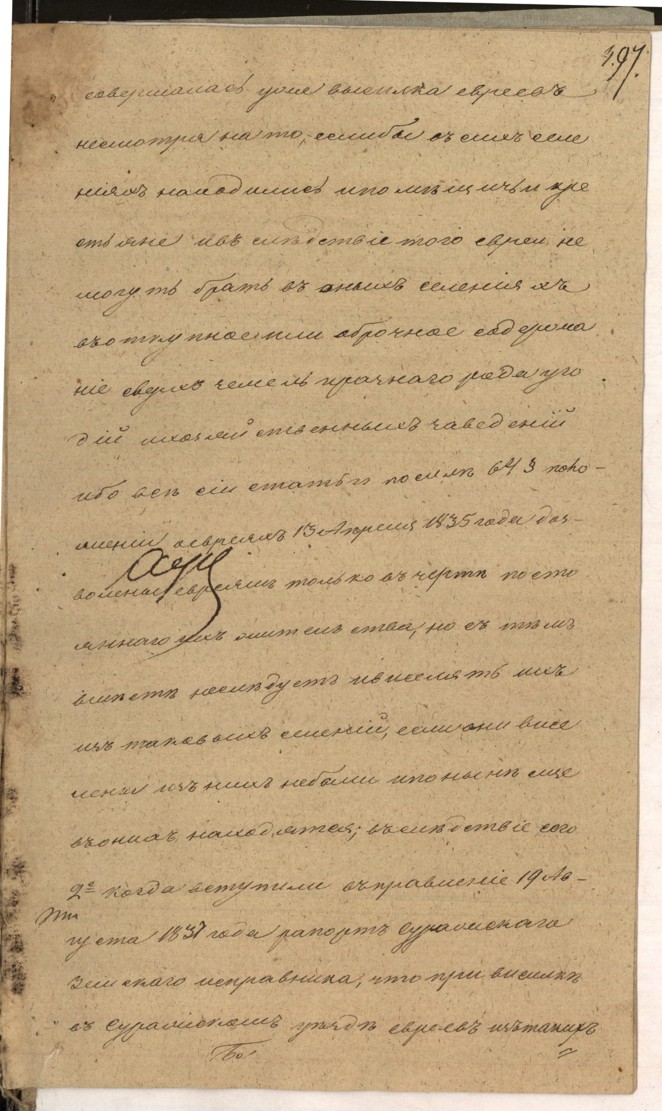 397.
совершалась уже высылка евреевъ
несмотря на то, еслибы въ сихъ селе
ніяхъ находились и помѣщичьи кре
стьяне ивъ слѣдствіе того евреи не
могутъ брать въ оныхъ селеніяхъ
въ откупное или оброчное содержа
ніе сверхъ земель прачнаго рода уго
дій и хозяйственныхъ заведеній
ибо всѣ сіи статьи по силѣ 643 поло-
женіи о евреяхъ 13 Апреля 1835 года доз-
волены евреямъ только въ чертѣ посто
яннаго ихъ жительства, но съ тѣмъ
вмѣстѣ неслѣдуетъ и выселять ихъ
изъ таковыхъ селеній, если они высе
лены изъ нихъ небыли и по нынѣ еще
въ оныхъ находятся; въ слѣдствіе сего
2е когда вступили въ правленіе 19 Ав-
густа 1837 года рапортъ Суражскаго
Земскаго исправника, что при высылкѣ
въ Суражскомъ уѣздѣ евреевъ изъ таких